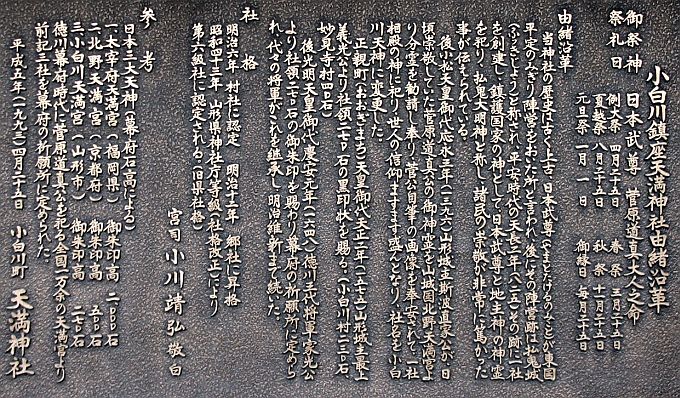 小白川鎮座天満神社由緒沿革
御祭神　日本武尊　菅原道真大人之命
祭礼日　例大祭　四月二十五日　春祭　三月二十五日
夏越祭　八月二十五日　秋祭　十一月二十五日
元旦祭　一月一日　御縁日　毎月二十五日
由緒沿革
当神社の歴史は古く上古、日本武尊(やまとたけるのみこと)が東国
平定のみぎり陣営をおいた所と言われ、後にその陣営跡は払鬼城
(ふっきじょう)と称され、平安時代の天長二年(八二五)その跡に一社
を創建し、鎮護国家の神として、日本武尊と地主神の神霊
を祀り、払鬼大明神と称し、諸民の崇敬が非常に篤かった
事が伝えられている。
後小松天皇御代応永三年(一三九六)山形城主斯波直家公が日
頃崇敬していた菅原道真公の御神霊を山城国北野天満宮よ
り分霊を勧請し奉り、菅公自筆の画像を奉安されて、一社
相殿の神に祀り、世人の信仰ますます盛んとなり、社名を小白
川天神に変更した。
正親町(おおぎまち)天皇御代天正三年(一五七五)山形城主最上
義光公より社領二七〇石の黒印状を賜る。(小白川村二三〇石、
妙見寺村四〇石)
後光明天皇御代慶安元年(一六四八)徳川三代将軍家光公
より社領二七〇石の御朱印を賜わり幕府の祈願所に定めら
れ、代々の将軍がこれを継承し、明治維新まで続いた。
社格　明治六年　村社に認定　明治十二年　郷社に昇格
昭和四十三年　山形県神社庁等級(社格改正)により
第六級社に認定される。(旧県社格)
宮司　小川靖弘　敬白
参考
日本三大天神(徳川幕府石高による)
一、太宰府天満宮(福岡県)　御朱印高　二〇〇〇石
二、北野天満宮(京都府)　御朱印高　五〇〇石
三、小白川天満宮(山形市)　御朱印高　二七〇石
徳川幕府時代に菅原道真公を祀る全国一万余の天満宮より
前記三社を幕府の祈願所に定められた。
平成五年(一九九三)四月二十五日　小白川町　天満神社